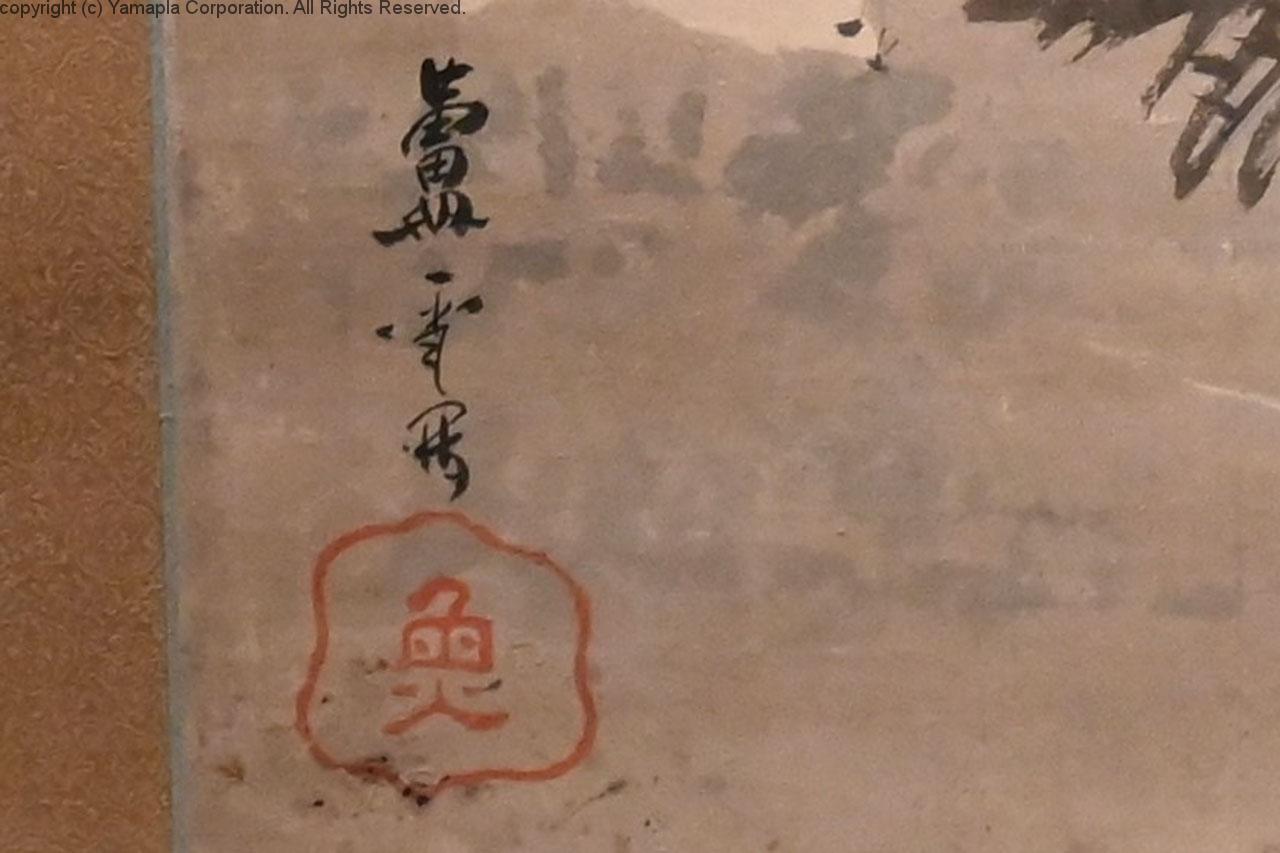 copyright (c) Yamapla Corporation. All Rights Reserved.
蘆雪寫
魚